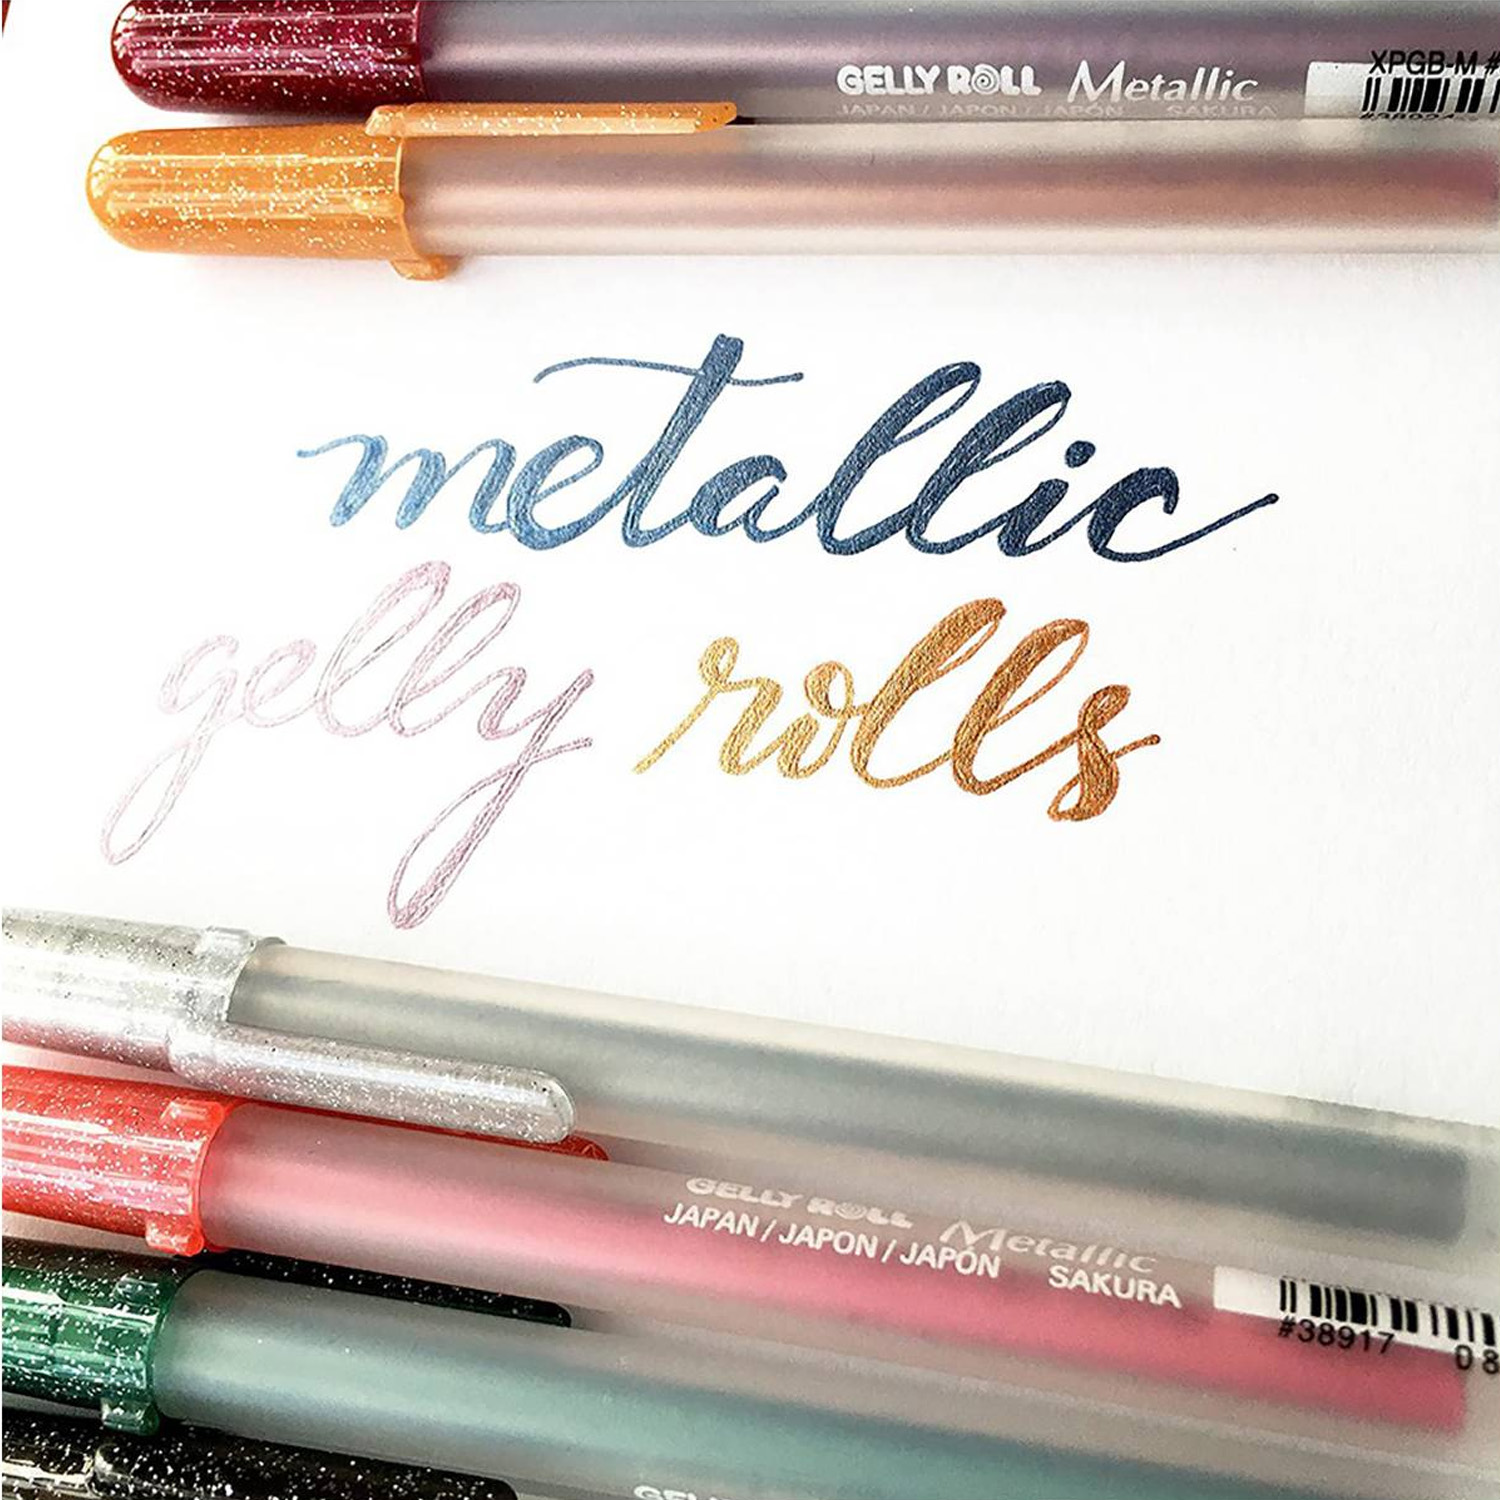 GELLY ROLL Metallic
JAPAN / JAPON / JAPÓN SAKURA
XPGB-M #
metallic
gelly rolls
GELLY ROLL Metallic
JAPAN / JAPON / JAPÓN SAKURA
#38917 08